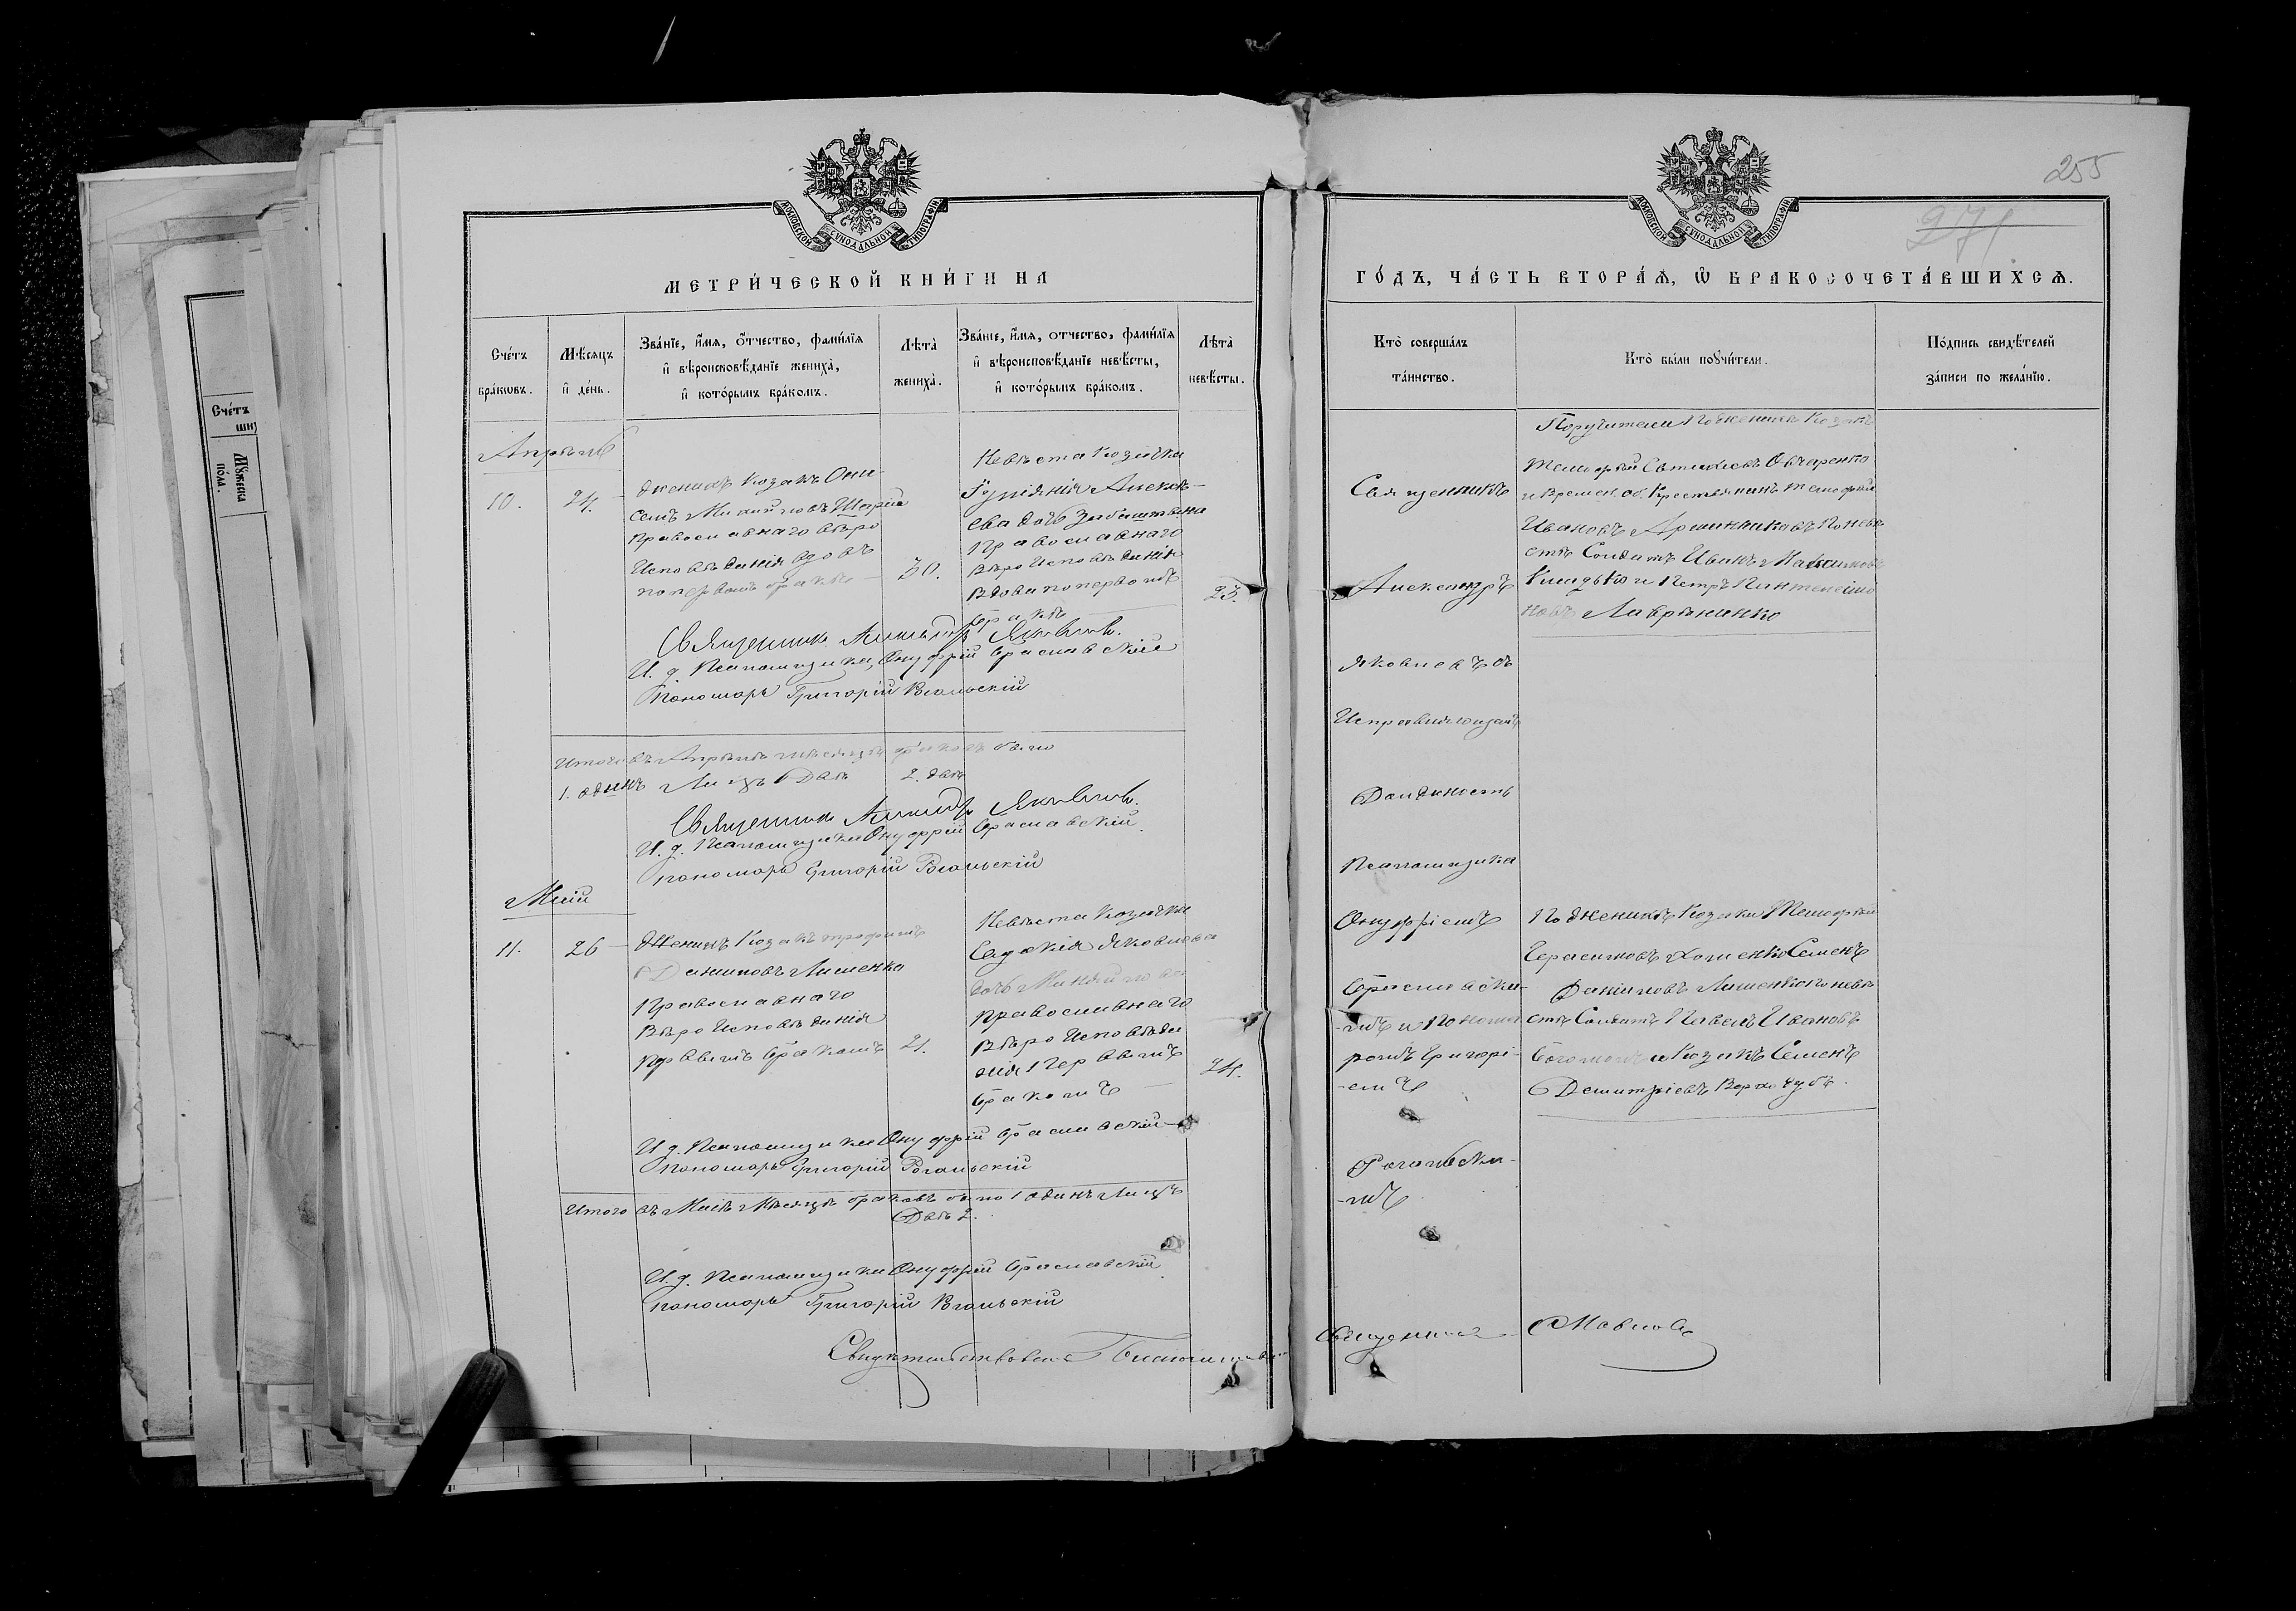 МОСКОВСКОЙ СУНОДАЛЬНОЙ ТИПОГРАФІИ
МЕТРИ́ЧЕСКОЙ КНИ́ГИ НА
Сче́тъ
бра́ковъ.
Мѣ́сяцъ
и де́нь.
Зва́нїе, и́мя, о́тчество, фами́лїя
и҆ вѣроисповѣ́данїе жениха̀,
и҆ кото́рымъ бра́комъ.
Лѣта̀
жениха̀.
Зва́нїе, и́мя, о́тчество, фами́лїя
и҆ вѣроисповѣ́данїе невѣ́сты,
и҆ кото́рымъ бра́комъ.
Лѣта̀
невѣ́сты.
Апрѣль
10.
24.
Женихъ Козакъ Они-
симъ Михайловъ
Православнаго вѣро
Исповѣданія вдовъ
по первомъ бракѣ
30.
Невѣста Козачка
Алексѣ-
ева дочь
Православнаго
Вѣро Исповѣданія
Вдова по первомъ
бракѣ
23.
Священникъ Александръ Яковлевъ.
И. д. Псаломщика Онуфрій Браславскій
Пономарь Григорій Рогальскій
Итого въ Апрѣлѣ мѣсяцѣ браковъ было
1. одинъ Лицъ Двѣ 2. двѣ
Священникъ Александръ Яковлевъ.
И. д. Псаломщика Онуфрій Браславскій.
пономарь Григорій Рогальскій
Май
11.
26
Женихъ Козакъ Трофимъ
Даниловъ Лименко
Православнаго
Вѣро Исповѣданія
Первымъ бракомъ
21.
Невѣста Козачка
Евдокія Яковлева
дочь Михайлова
православнаго
Вѣро Исповѣда
нія Первымъ
бракомъ
24.
И. д. Псаломщика Онуфрій Браславскій
пономарь Григорій Рогальскій
Итого въ Маѣ Мѣсяцѣ браковъ было 1 одинъ Лицъ
Двѣ 2.
И. д. Псаломщика Онуфрій Браславскій
пономарь Григорій Рогальскій
Свидѣтельствовалъ
255
271
МОСКОВСКОЙ СУНОДАЛЬНОЙ ТИПОГРАФІИ
ГО́ДЪ, ЧА́СТЬ ВТОРА́Я, Ѡ҆ БРАКОСОЧЕТА́ВШИХСЯ.
Кто̀ соверша́лъ
та́инство.
Кто̀ бы́ли поꙋчи́тели.
По́дпись свидѣ́телей
за́писи по жела́нїю.
Священникъ
Александръ
Яковлевъ съ
Исправляющимъ
Должность
Псаломщика
Онуфріемъ
Браславски-
мъ и Понома
ремъ Григорі-
емъ
Рогальски-
мъ
Поручители По женихѣ Козакъ
Тимофей Овчаренко
и Времен. об. Крестьянинъ Тимофей
Ивановъ по невѣ
стѣ Солдатъ Иванъ Максимовъ
и Петръ Пантелеимо
новъ Лавриненко
По женихѣ Козаки Тимофей
Герасимовъ Хоменко Семенъ
Даниловъ Лименко по невѣ
стѣ Солдатъ Павелъ Ивановъ
и Козакъ Семенъ
Димитріевъ
Священникъ
Сче́тъ
Мꙋ́жеска
по́ла.